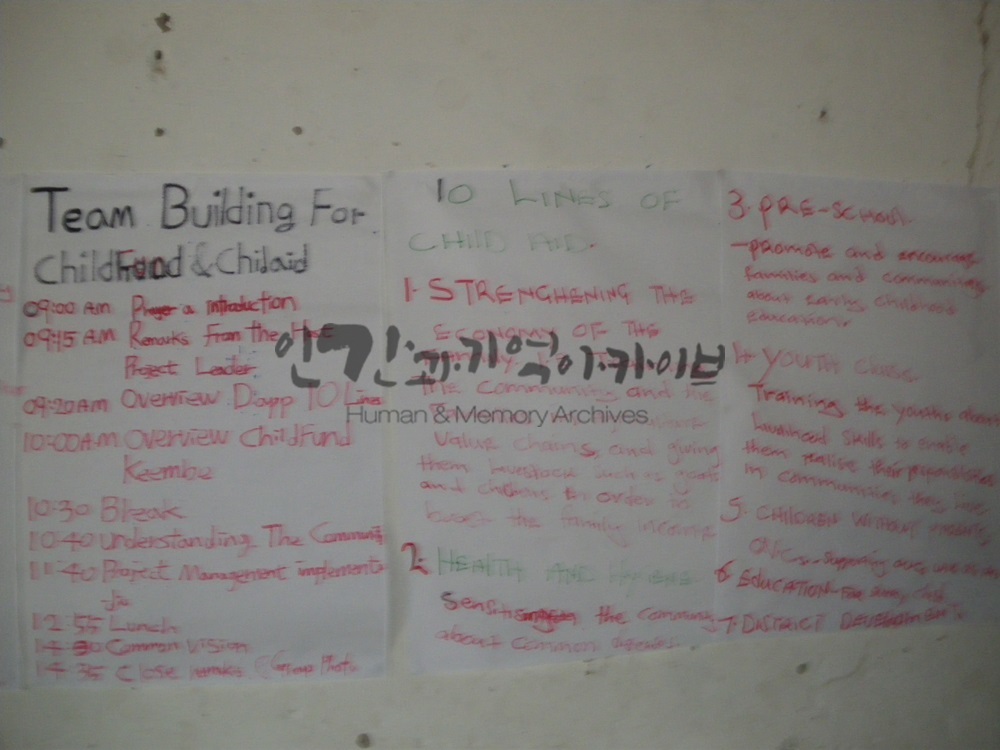 Team Building For
ChildFund & Childaid
09:00 AM Prayer & Introduction
09:15 AM Remarks From the Host
Project Leader.
09:20 AM Overview Dapp 10 Lines
10:00 AM Overview ChildFund
Keembe
10:30 Break
10:40 Understanding The Community
11:40 Project Management implementa
12:55 Lunch
Common Vision
14:35 Close remarks & Group Photo
10 LINES OF
CHILD AID.
1. STRENGHENING THE
ECONOMY OF THE
the community and the
value chains, and giving
them livestock such as goats
and chickens in order to
boost the family income
2. HEALTH AND HYGIENE
the community
about common diseases
3. PRE-SCHOOL
-promote and encourage
families and community
about early childhood
education.
4. YOUTH CLUBS.
Training the youths about
skills to enable
them realise their
in communities they live
5. CHILDREN WITHOUT PARENTS
6. EDUCATION FOR
7. DISTRICT DEVELOPMENT
인간과기억아카이브
Human & Memory Archives